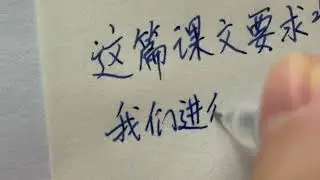 这篇课文要求
我们进